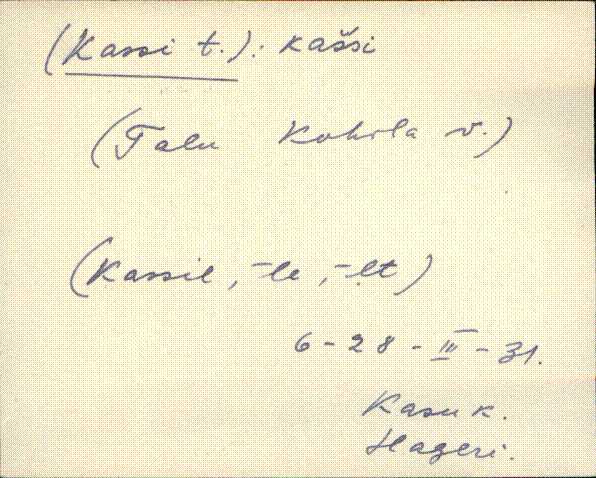 (Kassi t.): kašsi
(Talu Kohila v.)
(Kassil, -le, -lt)
6-28-III-31.
Kasuk.
Hageri.